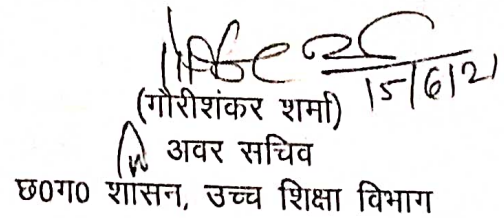 15/6/21
(गौरीशंकर शर्मा)
अवर सचिव
छ0ग0 शासन, उच्च शिक्षा विभाग